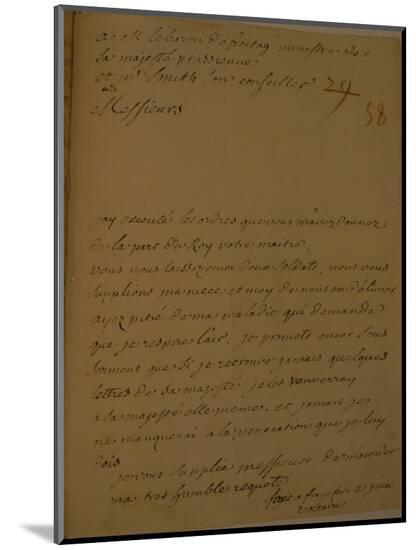 a M le baron de freitag ministre de
sa majesté prussienne
et mr Smith son conseiller
29
58
Messieurs
jay executé les ordres que vous m'avez donnez
de la part du Roy votre maitre.
vous nous laissez encor deux soldats, nous vous
supplions ma niece et moy de nous en delivrer
ayez pitié de ma maladie qui demande
que je respire l'air. je promets encor sous
serment que si je retrouve jamais quelques
lettres de sa majesté je les renverray
a sa majesté elle meme, et jamais je
ne manquerai à la veneration que je luy
dois
je vous supplie messieurs de m'acorder
ma tres humble requete
a francfort
voltaire